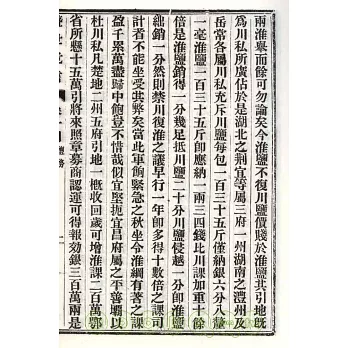 兩淮舉而餘可勿論矣今淮鹽不復川鹽價賤於淮鹽其引地旣
爲川私所廣佔於是湖北之荊宜等屬三府一州湖南之澧州及
岳常各屬川私充斥川鹽每包一百三十五斤僅納銀六分八釐
一毫淮鹽二百三十五斤卽應納一兩三四錢比川課加重十餘
倍是淮鹽銷得一分幾足抵川鹽二十分川鹽侵越一分卽淮鹽
絀銷一分然則禁川復淮之議早行一年卽多得十數倍之課司
計者不能坐受其弊矣當此軍餉緊急之秋坐令淮綱有著之課
盈千累萬盡歸中飽豈不惜哉假宜堅扼宜昌府屬之平善壩以
杜川私凡楚地二州五府引地一槪收回歲可增淮課二百萬鄂
省所懸十五萬引將來照章募商認運可得報效銀三百萬兩是